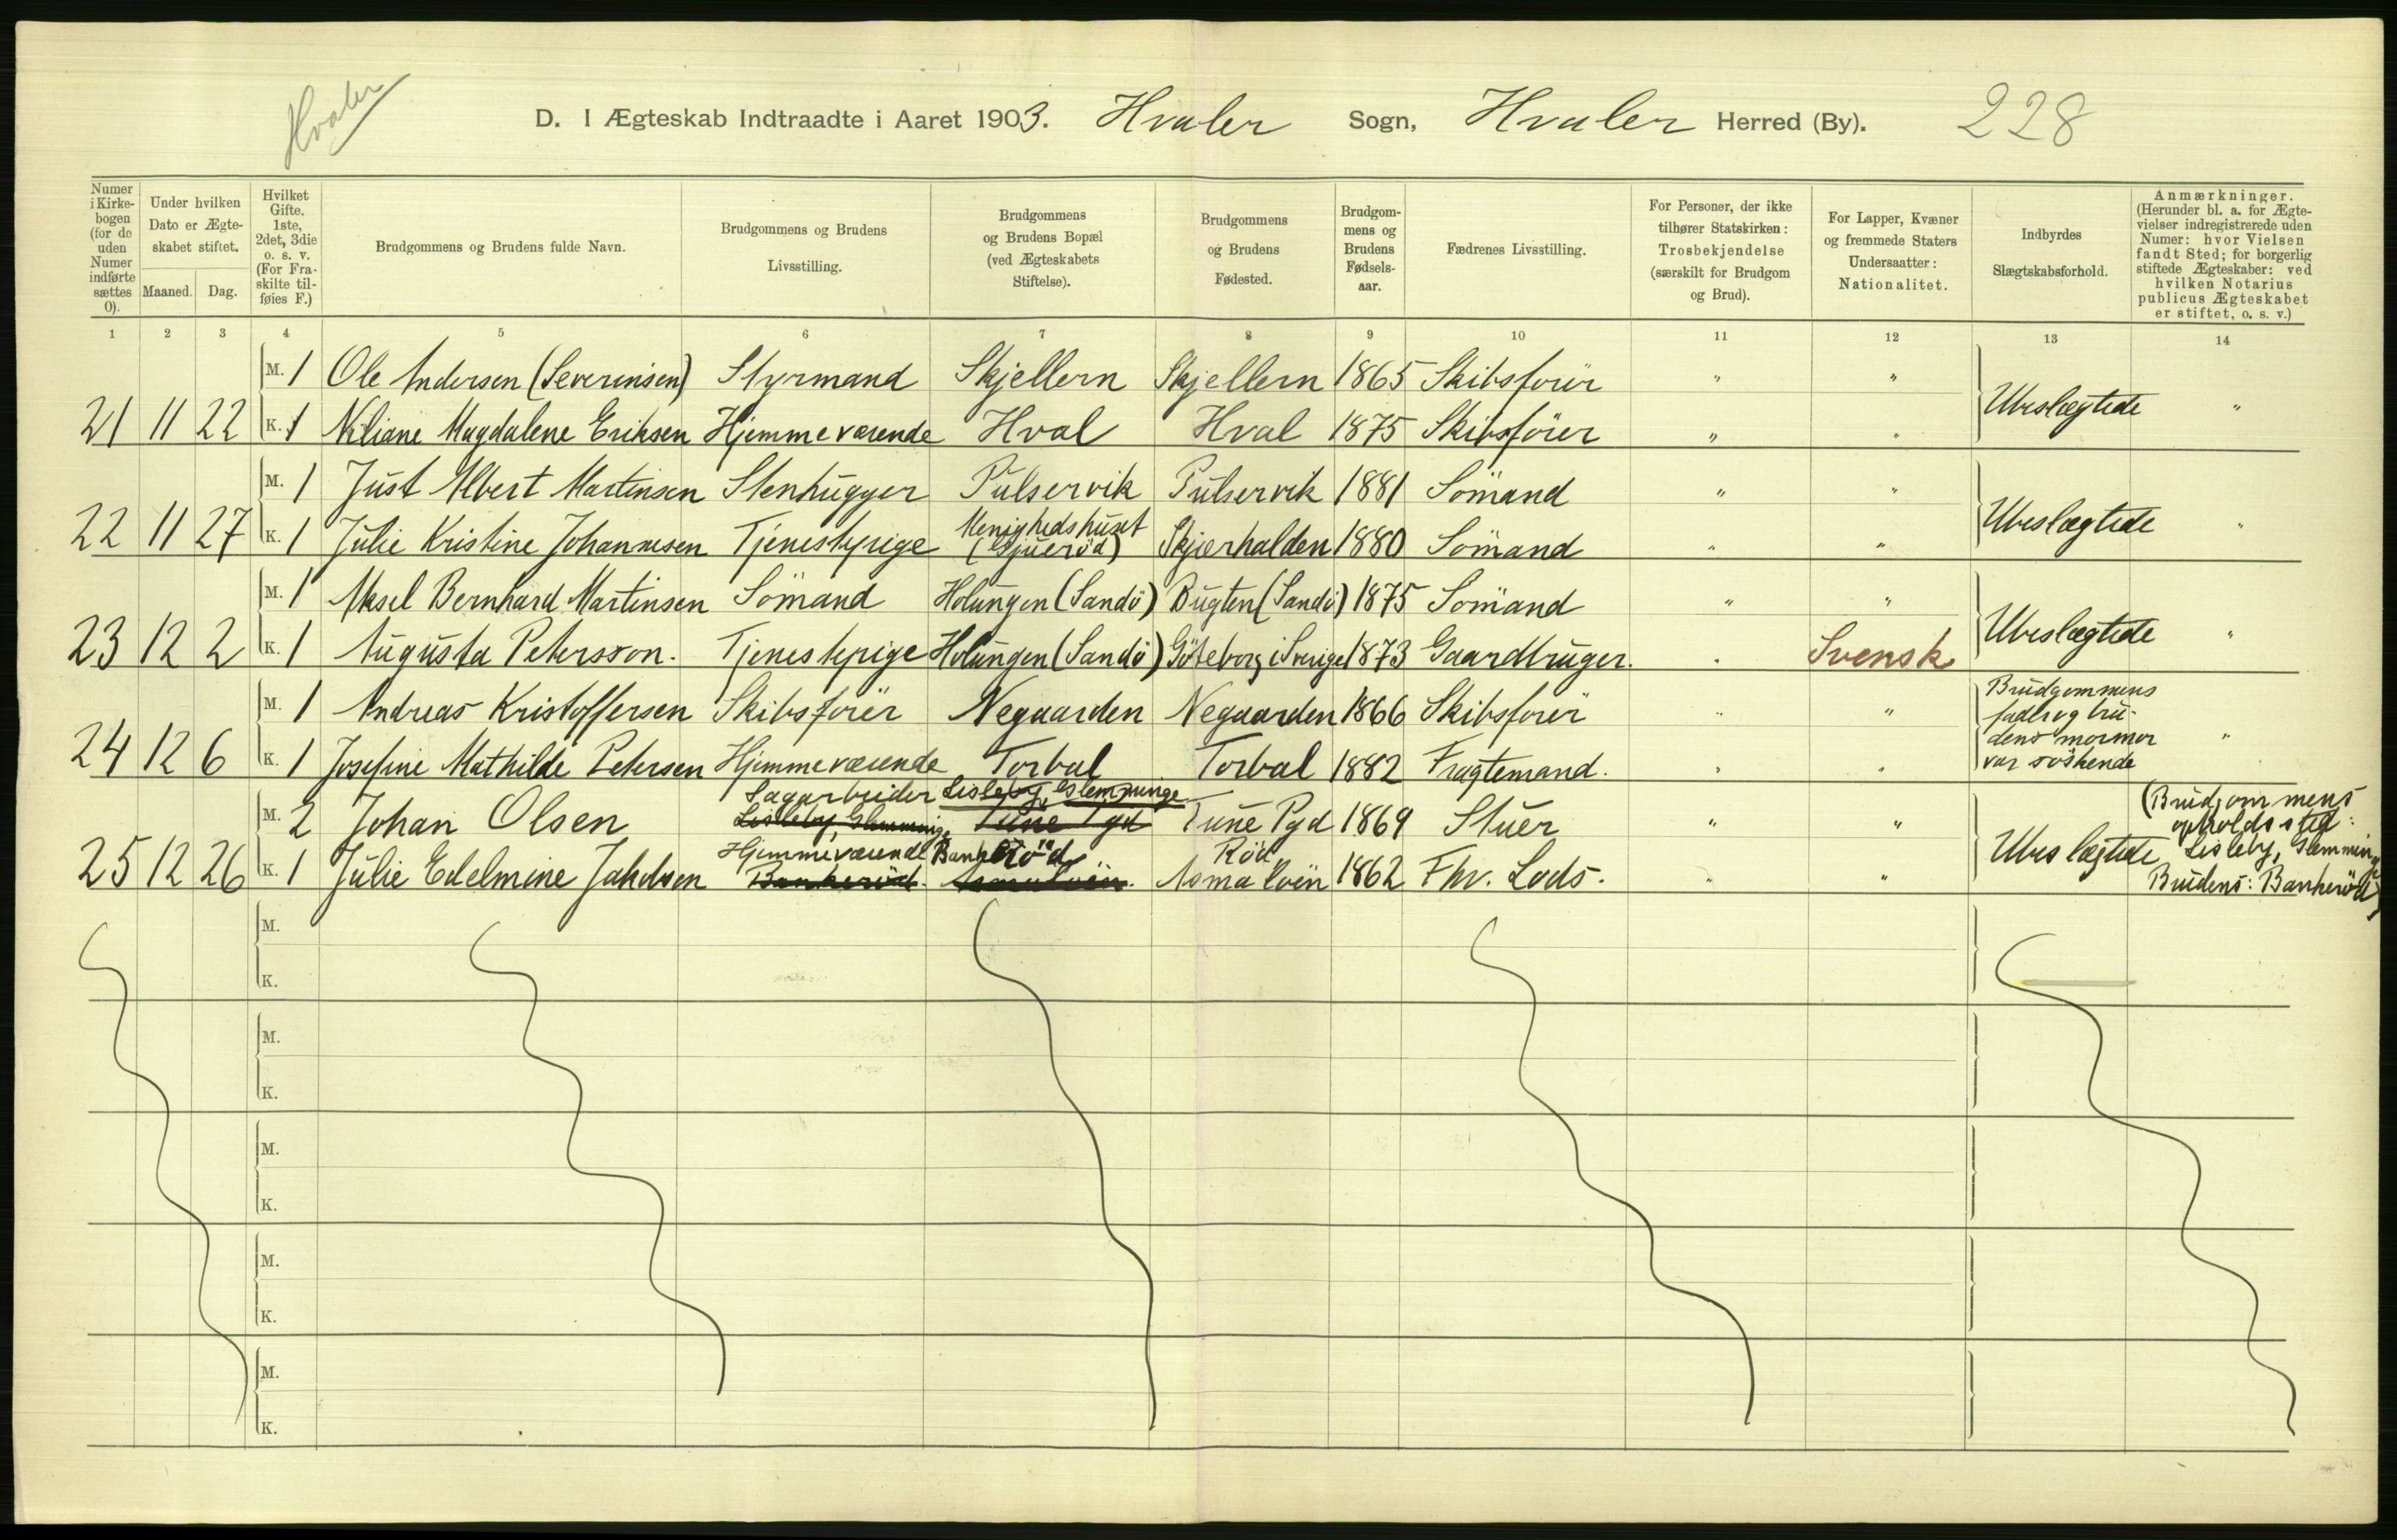 Hvaler
D. I Ægteskab Indtraadte i Aaret 1903. Hvaler Sogn, Hvaler Herred (By). 228
Numer i Kirke-bogen (for de uden Numer indførte sættes 0).
Under hvilken Dato er Ægte-skabet stiftet.
Maaned. Dag.
Hvilket Gifte. 1ste, 2det, 3die o. s. v. (For Fra-skilte til-føies F.)
Brudgommens og Brudens fulde Navn.
Brudgommens og Brudens Livsstilling.
Brudgommens og Brudens Bopæl (ved Ægteskabets Stiftelse).
Brudgommens og Brudens Fødested.
Brudgom-mens og Brudens Fødsels-aar.
Fædrenes Livsstilling.
For Personer, der ikke tilhører Statskirken: Trosbekjendelse (særskilt for Brudgom og Brud).
For Lapper, Kvæner og fremmede Staters Undersaatter: Nationalitet.
Indbyrdes Slægtskabsforhold.
Anmærkninger. (Herunder bl. a. for Ægte-vielser indregistrerede uden Numer: hvor Vielsen fandt Sted; for borgerlig stiftede Ægteskaber: ved hvilken Notarius publicus Ægteskabet er stiftet, o. s. v.)
1 2 3 4 5 6 7 8 9 10 11 12 13 14
M. 1 Ole Andersen (Severinsen) Styrmand Skjellern Skjellern 1865 Skibsförer " "
21 11 22 K. 1 Niliane Magdalene Eriksen Hjemmeværende Hval Hval 1875 Skibsförer " " Ubeslægtede "
M. 1 Just Albert Martinsen Stenhugger Pulservik Pulservik 1881 Sömand " "
22 11 27 K. 1 Julie Kristine Johannesen Tjenestepige Menighedshuset Skjærhalden 1880 Sömand " " Ubeslægtede "
M. 1 Aksel Bernhard Martinsen Sömand Holungen (Sandö) Bugten (Sandö) 1875 Sömand " "
23 12 2 K. 1 Augusta Petersson. Tjenestepige Holungen (Sandö) Göteborg i Sverige 1873 Gaardbruger. " Svensk Ubeslægtede "
M. 1 Andreas Kristoffersen Skibsförer Negaarden Negaarden 1866 Skibsförer " " Brudgommens
fadr og bru-
24 12 6 K. 1 Josefine Mathilde Petersen Hjemmeværende Torbal Torbal 1882 Fragtemand. " " dens mormor "
var söskende
Sagarbeider Lisleby, Glemminge
M. 2 Johan Olsen Lisleby, Glemminge Tune Pgd Tune Pgd 1869 Stuer " " (Brudgommens
opholdssted:
Hjemmeværende Bankeröd Röd
25 12 26 K. 1 Julie Edelmine Jakobsen Bankeröd. Asmalöen. Asmalöen 1862 Fhv. Lods. " " Ubeslægtede Lisleby, Glemminge
Brudens: Bankeröd)
M.
K.
M.
K.
M.
K.
M.
K.
M.
K.